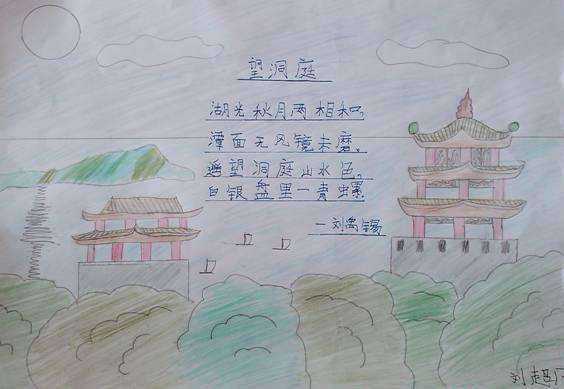 望洞庭
湖光秋月两相和,
潭面无风镜未磨。
遥望洞庭山水色,
白银盘里一青螺
一刘禹锡
刘超